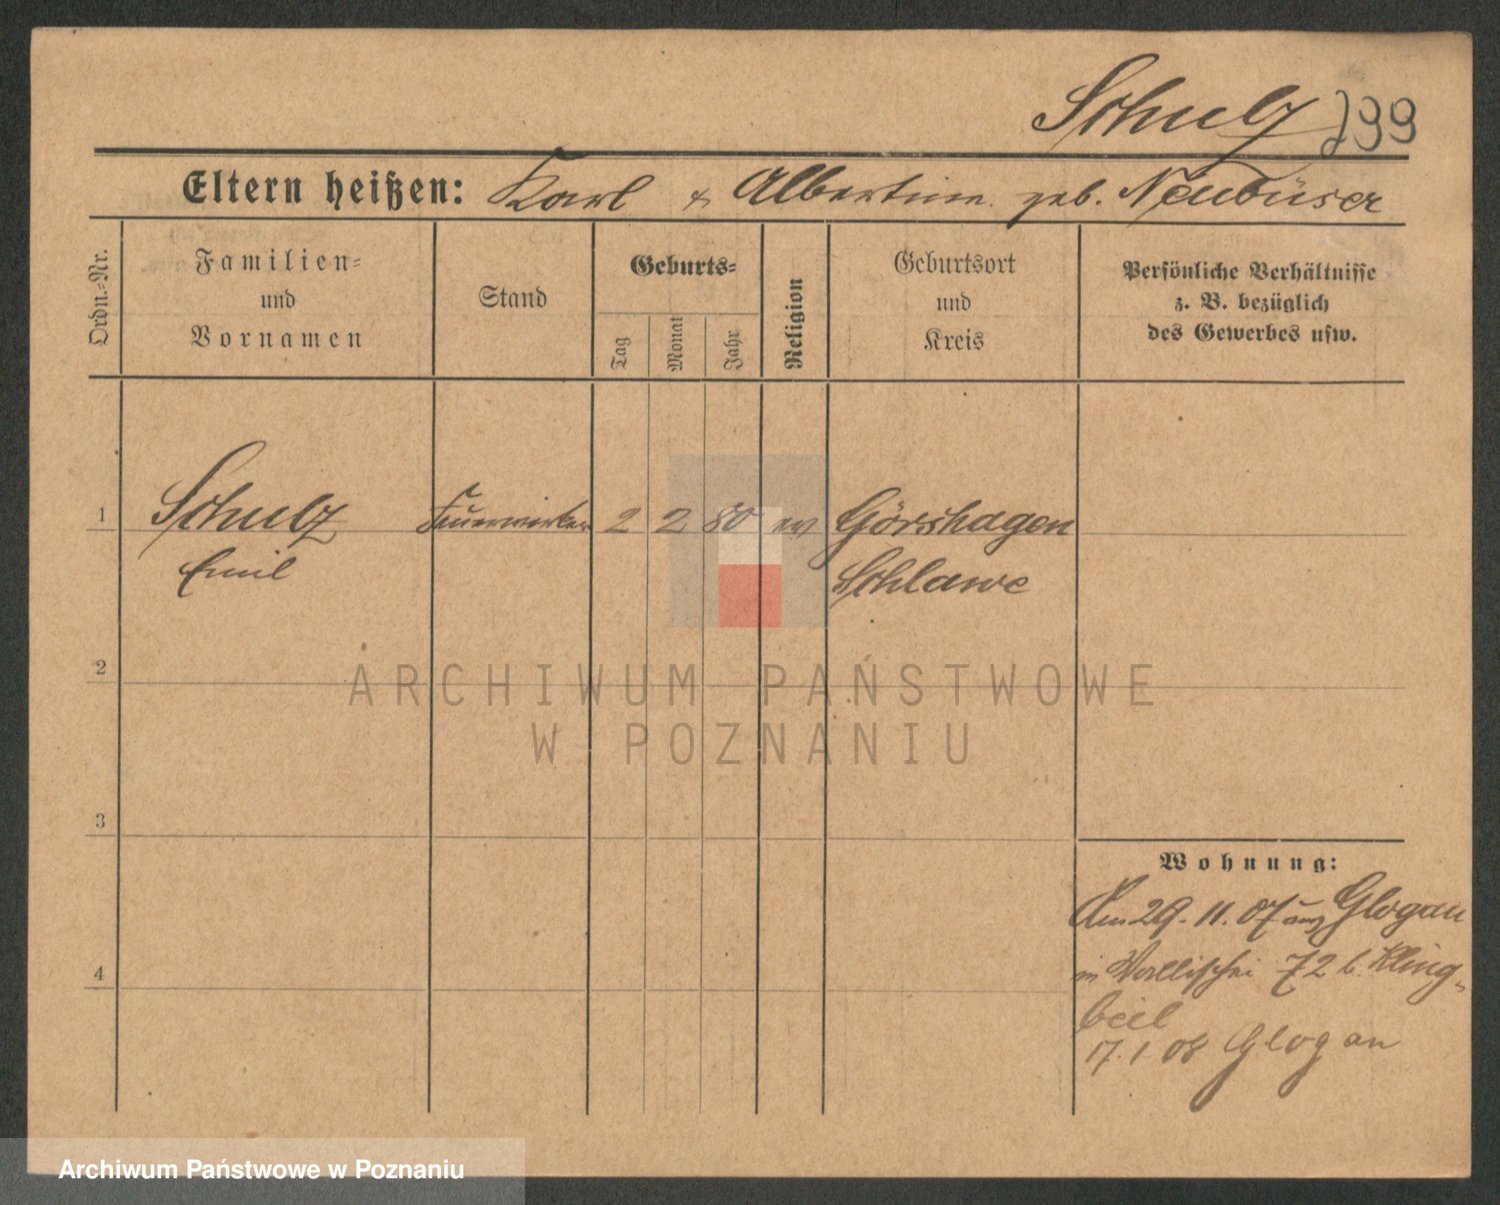 Schulz 799
Eltern heißen: Karl & Albertine geb. Neubüser
Ordn.-Nr.
Familien-
und
Vornamen
Stand
Geburts-
Tag
Monat
Jahr
Religion
Geburtsort
und
Kreis
Persönliche Verhältnisse
z. B. bezüglich
des Gewerbes usw.
1 Schulz Feuerwerker 2 2 80 ev Görshagen
Emil Schlawe
2
ARCHIWUM PAŃSTWOWE
W POZNANIU
3
Wohnung:
Am 29.11.07 aus Glogau
in Wallischei 72 b. Kling-
4
beil
17.1.08 Glogau
Archiwum Państwowe w Poznaniu